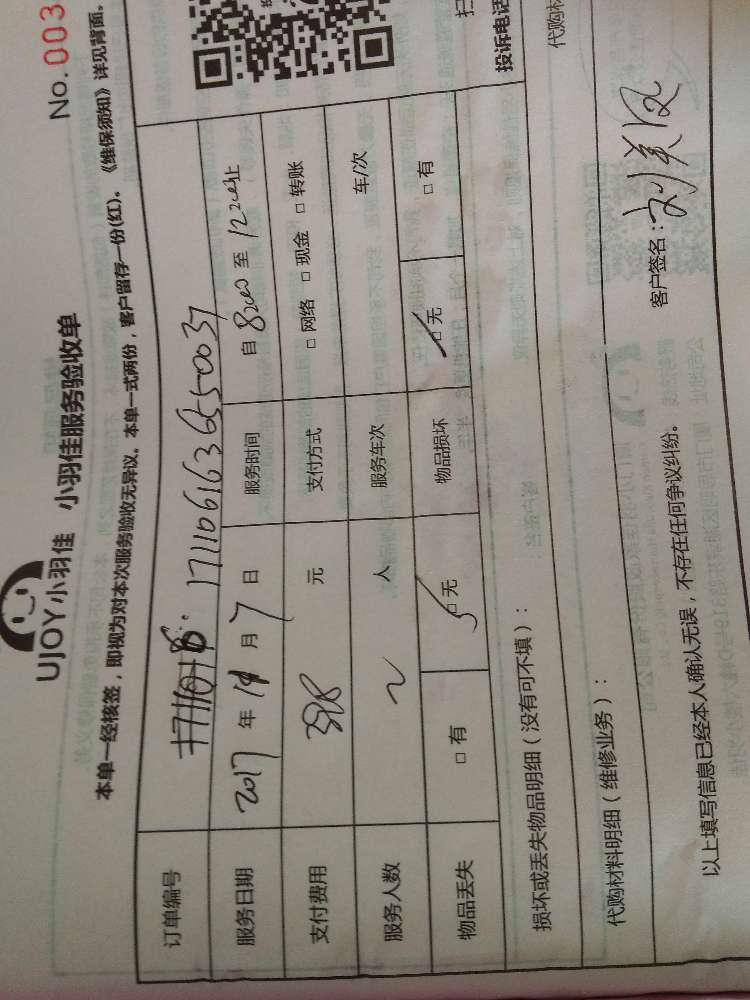 No.003
UJOY小羽佳 小羽佳服务验收单
本单一经核签，即视为对本次服务验收无异议。本单一式两份，客户留存一份(红)。《维保须知》详见背面。
订单编号 1711061636550037
服务日期 2017年11月7日 服务时间 自8:00至12:00止
支付费用 398元 支付方式 □网络 □现金 □转账
服务人数 2人 服务车次 车/次
物品丢失 □有 □无 物品损坏 □无 □有
损坏或丢失物品明细（没有可不填）：
代购材料明细（维修业务）：
代购材
以上填写信息已经本人确认无误，不存在任何争议纠纷。
客户签名：刘美凤
投诉电话
扫